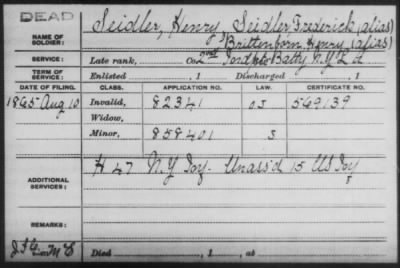 DEAD
NAME OF SOLDIER: Seidler, Henry Seidler, Frederick (alias)
Brittenborn, Henry (alias)
SERVICE: Late rank, Co. Batty N.Y. L A
TERM OF SERVICE: Enlisted , 1 Discharged , 1
DATE OF FILING. CLASS. APPLICATION NO. LAW. CERTIFICATE NO.
1865 Aug 10 Invalid, 82341 569139
Widow,
Minor, 858401 S
ADDITIONAL SERVICES: H 47 N.Y. Inf - Unass'd 15 US Inf
REMARKS:
Died , 1 , at